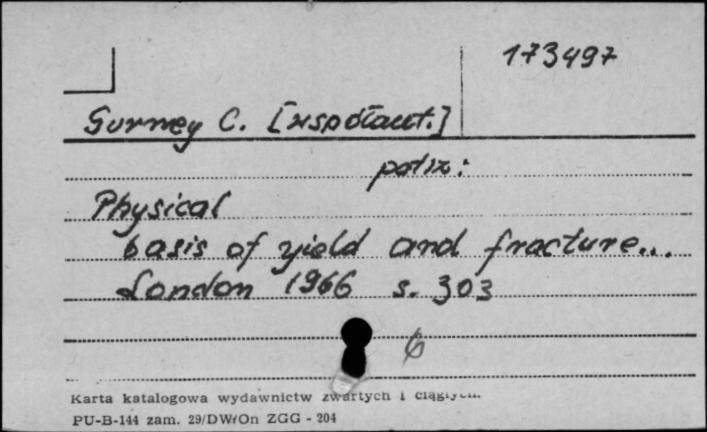 173497
Gurney C. [współaut.]
patrz:
Physical
basis of yield and fracture...
London 1966 s. 303
6
Karta katalogowa wydawnictw zwartych i ciągłych.
PU-B-144 zam. 29/DWiOn ZGG - 204